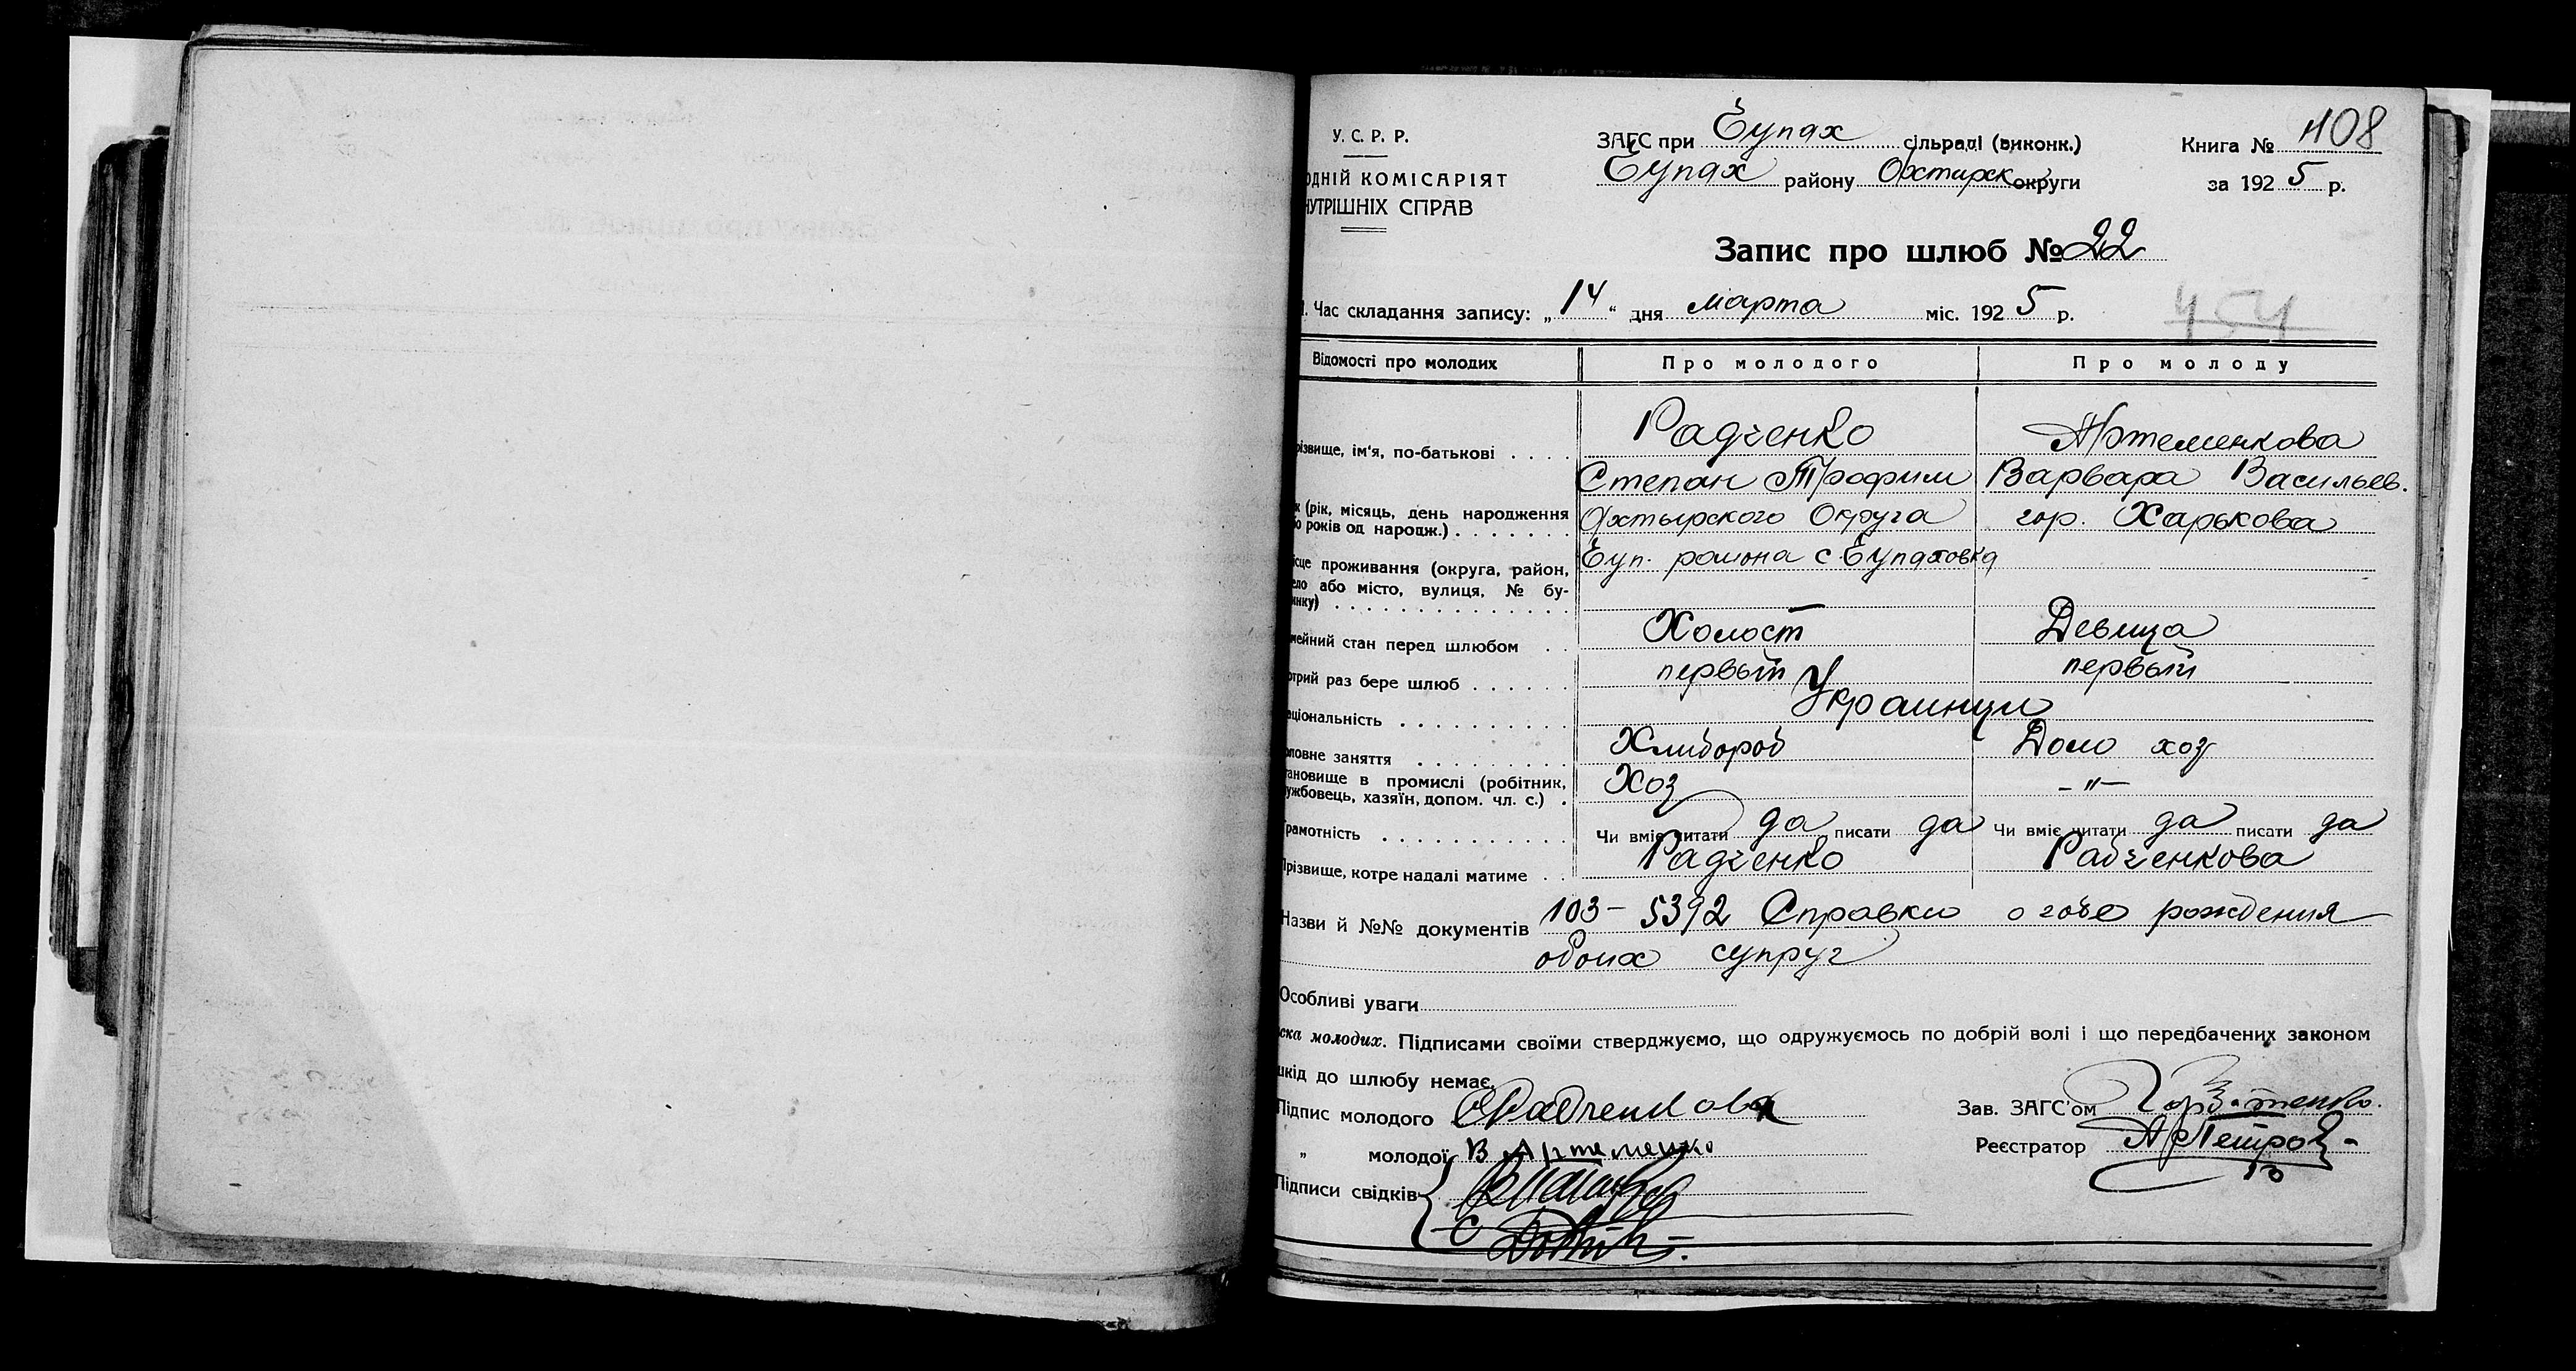 У. С. Р. Р.
ОДНІЙ КОМІСАРІЯТ
НУТРІШНІХ СПРАВ
ЗАГС при Еупах сільраді (виконк.)
Еупах району Охтирск округи
Книга № 108
за 1925 р.
Запис про шлюб № 22
1. Час складання запису: „14“ дня марта міс. 1925 р.
454
Відомості про молодих Про молодого Про молоду
різвище, ім'я, по-батькові . . . . Радченко Артеменкова
Степан Трофим Варвара Васильев.
к (рік, місяць, день народження Охтырского Округа гор. Харькова
бо років од народж.) . . . . . . .
Еуп. района с. Еупатовка
ісце проживання (округа, район,
ело або місто, вулиця, № бу-
инку) . . . . . . . . . . . . . .
мейний стан перед шлюбом . . Холост Девица
отрий раз бере шлюб . . . . . . первый первый
аціональність . . . . . . . . . . Украинци
оловне заняття . . . . . . . . . Хлибороб Дом хоз
тановище в промислі (робітник, Хоз -"-
ужбовець, хазяїн, допом. чл. с.) .
рамотність . . . . . . . . . . . Чи вміє читати да писати да Чи вміє читати да писати да
Прізвище, котре надалі матиме . . Радченко Радченкова
Назви й №№ документів 103 - 5392 Справки о годе рождения
обоих супруг
Особливі уваги
ска молодих. Підписами своїми стверджуємо, що одружуємось по добрій волі і що передбачених законом
шкід до шлюбу немає.
Підпис молодого Зав. ЗАГС'ом
„ молодої В Артеменко Реєстратор АПетров
Підписи свідків